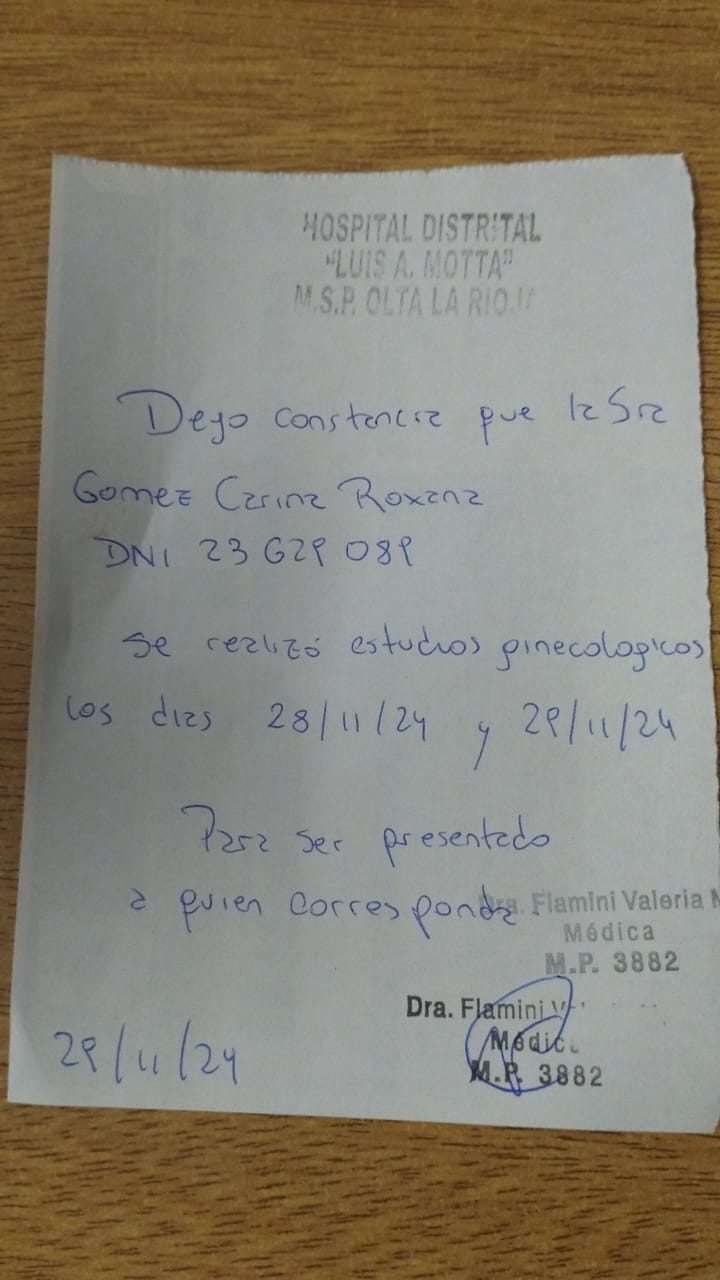 HOSPITAL DISTRITAL
"LUIS A. MOTTA"
M.S.P. OLTA LA RIOJA
Dejo constancia que la Sra
Gomez Carina Roxana
DNI 23 629 089
se realizó estudios ginecologicos
los dias 28/11/24 y 29/11/24
Para ser presentado
a quien corresponda
Dra. Flamini Valeria
Médica
M.P. 3882
Dra. Flamini
Médica
M.P. 3882
29/11/24